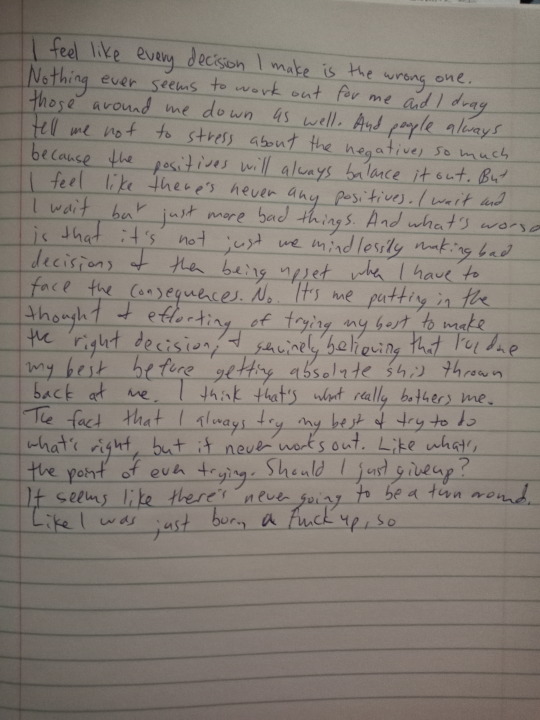 I feel like every decision I make is the wrong one.
Nothing ever seems to work out for me and I drag
those around me down as well. And people always
tell me not to stress about the negatives so much
because the positives will always balance it out. But
I feel like there's never any positives. I wait and
I wait, but just more bad things. And what's worse
is that it's not just me mindlessly making bad
decisions & then being upset when I have to
face the consequences. No. It's me putting in the
thought & efforting of trying my best to make
the right decision, & genuinely believing that I've done
my best before getting absolute shit thrown
back at me. I think that's what really bothers me.
The fact that I always try my best & try to do
what's right, but it never works out. Like what's
the point of even trying. Should I just give up?
It seems like there's never going to be a turn around.
Like I was just born a fuck up, so